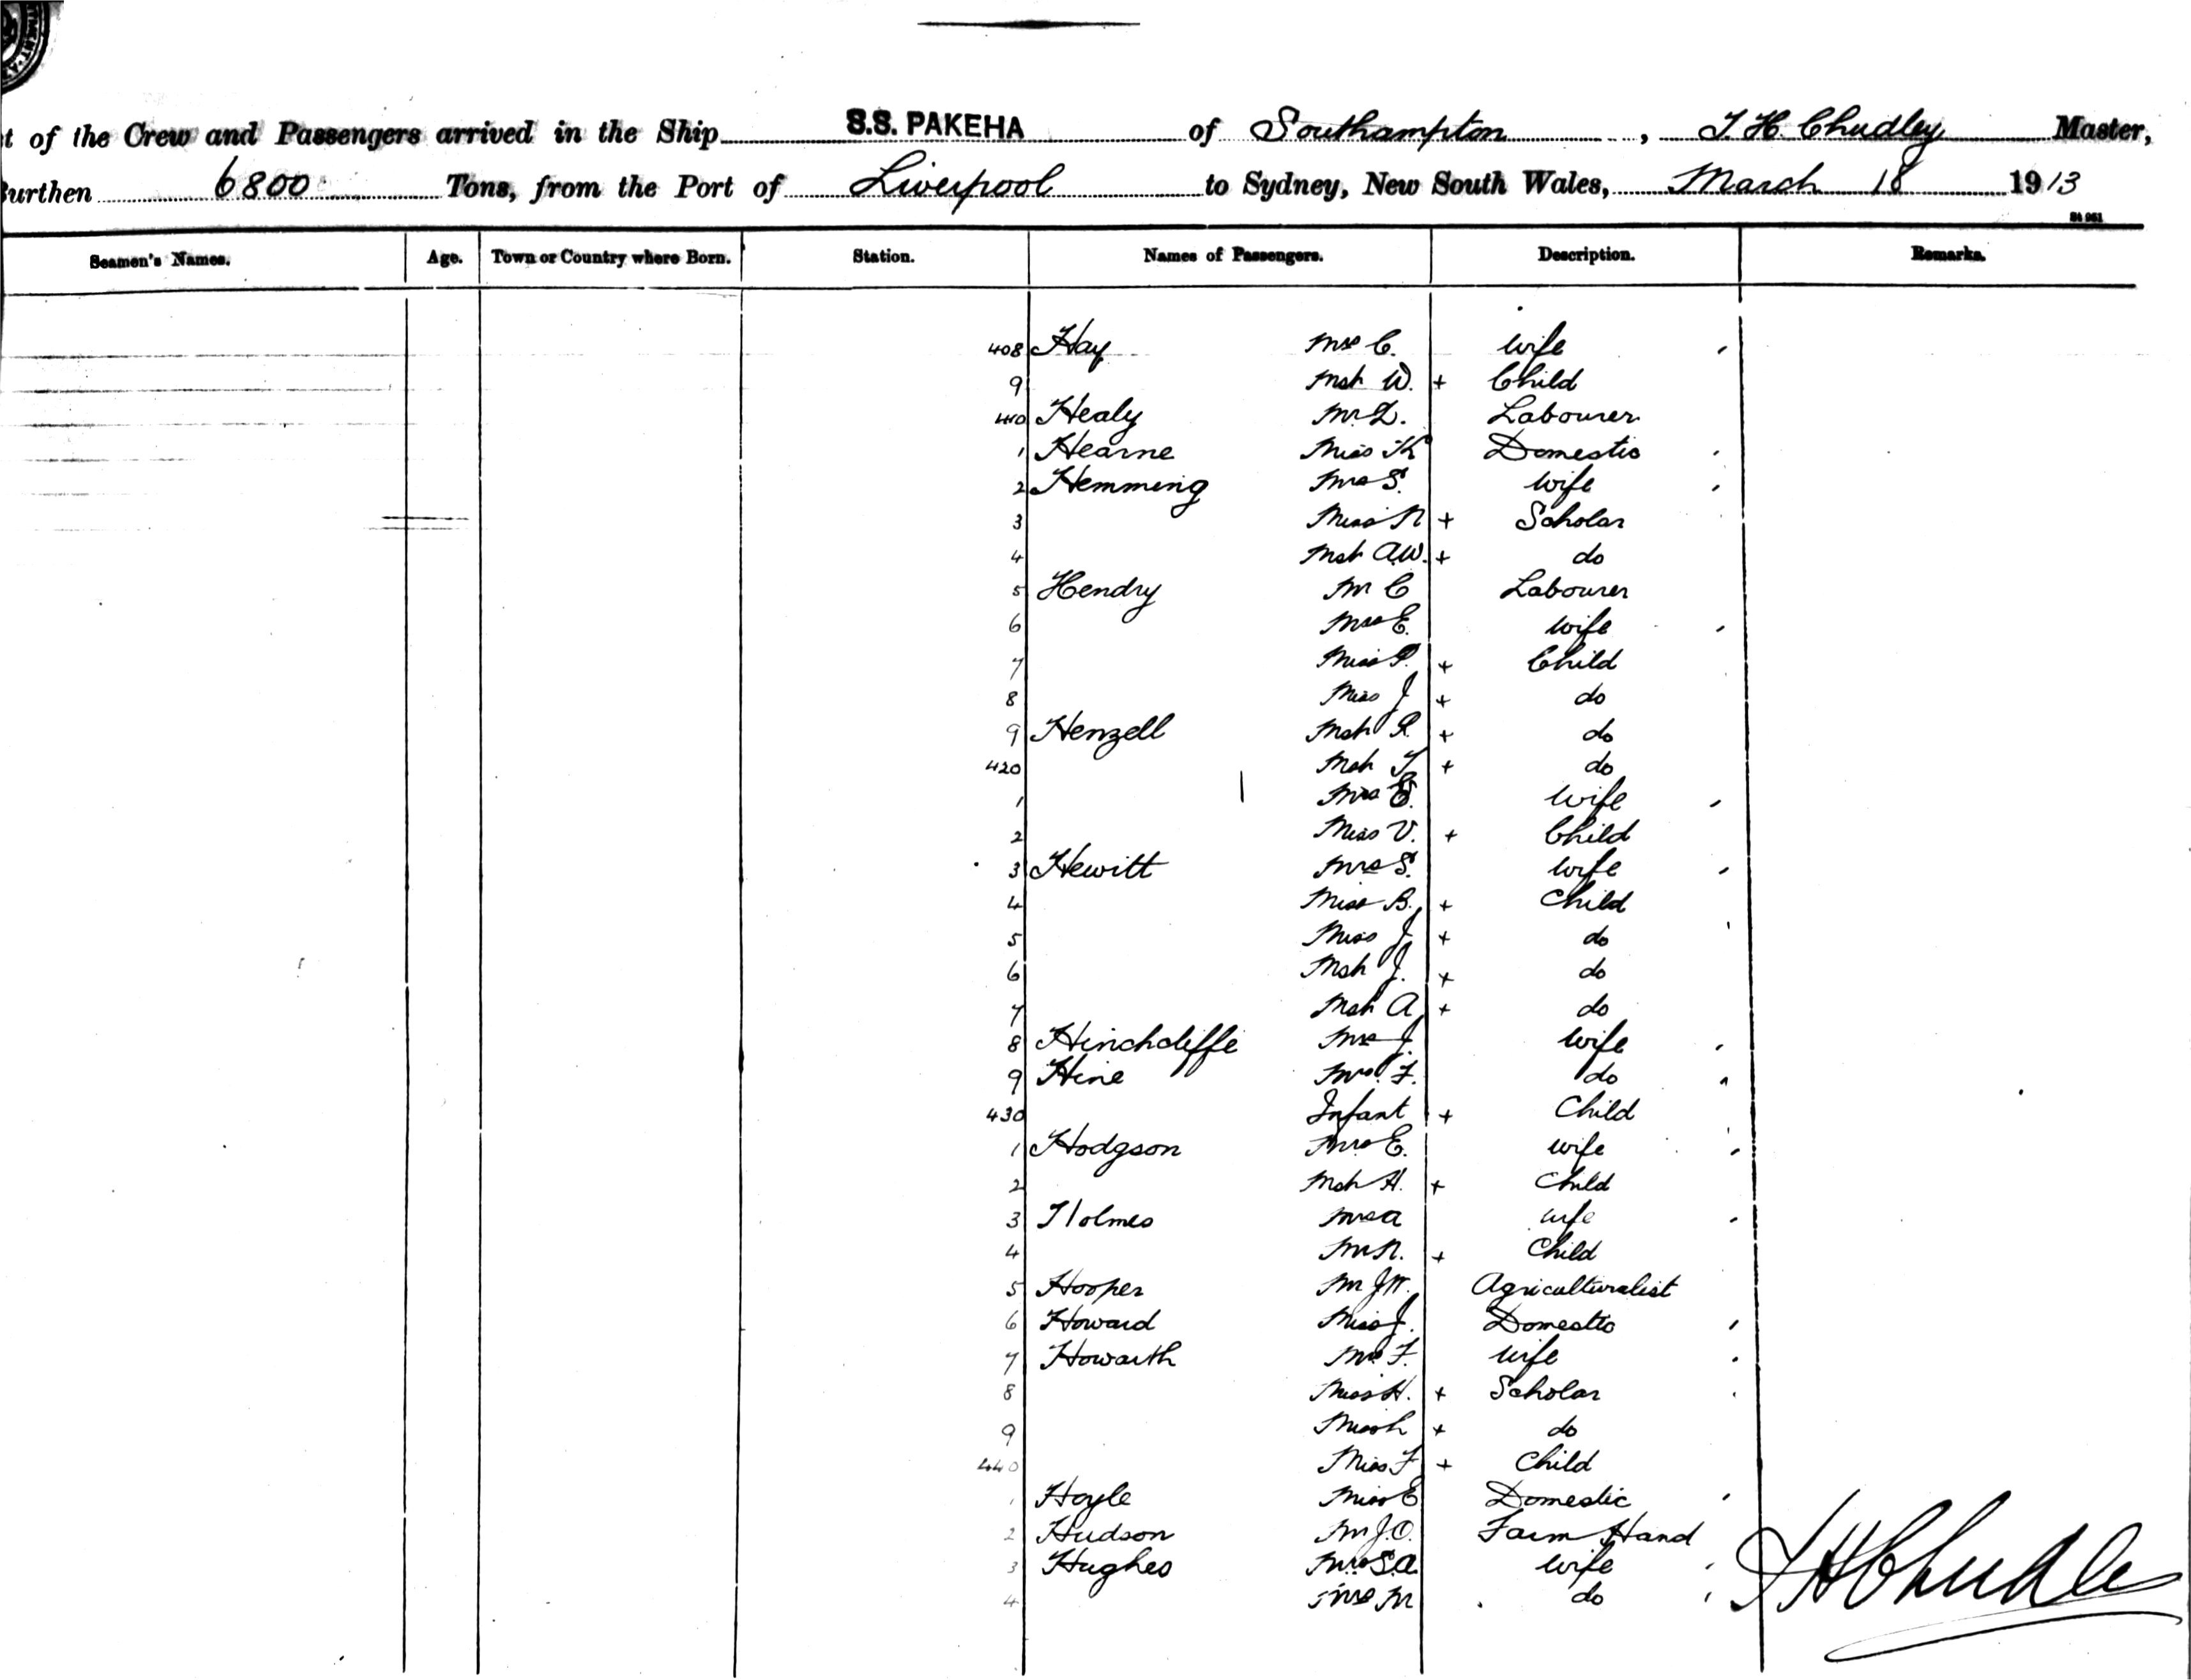 t of the Crew and Passengers arrived in the Ship S.S. PAKEHA of Southampton, T H Chudley Master,
Burthen 6800 Tons, from the Port of Liverpool to Sydney, New South Wales, March 18 1913
St 961
Seamen's Names. Age. Town or Country where Born. Station. Names of Passengers. Description. Remarks.
408 Hay Mrs C. Wife
9 Mstr W. + Child
410 Healy Mr D. Labourer
1 Hearne Miss K Domestic
2 Hemming Mrs S. Wife
3 Miss N + Scholar
4 Mstr A.W. + do
5 Hendry Mr C Labourer
6 Mrs E. Wife
7 Miss P. + Child
8 Miss J + do
9 Henzell Mstr R. + do
420 Mstr T + do
1 Mrs E. Wife
2 Miss V. + Child
3 Hewitt Mrs S. Wife
4 Miss B. + Child
5 Miss J + do
6 Mstr J. + do
7 Mstr A + do
8 Hinchcliffe Mrs J. Wife
9 Hine Mrs. F. do
430 Infant + Child
1 Hodgson Mrs E. Wife
2 Mstr H. + Child
3 Holmes Mrs A Wife
4 Mr N. + Child
5 Hooper Mr J.W. Agriculturalist
6 Howard Miss J. Domestic
7 Howarth Mrs F. Wife
8 Miss H. + Scholar
9 Miss L + do
440 Miss F + Child
1 Hoyle Miss E Domestic
2 Hudson Mr J.O. Farm Hand
3 Hughes Mrs S.A. Wife
4 Mrs M do
T H Chudley